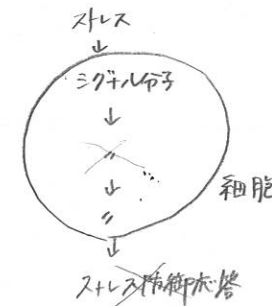 ストレス
↓
シグナル分子
↓
〃
↓
〃
細胞
↓
ストレス防御応答